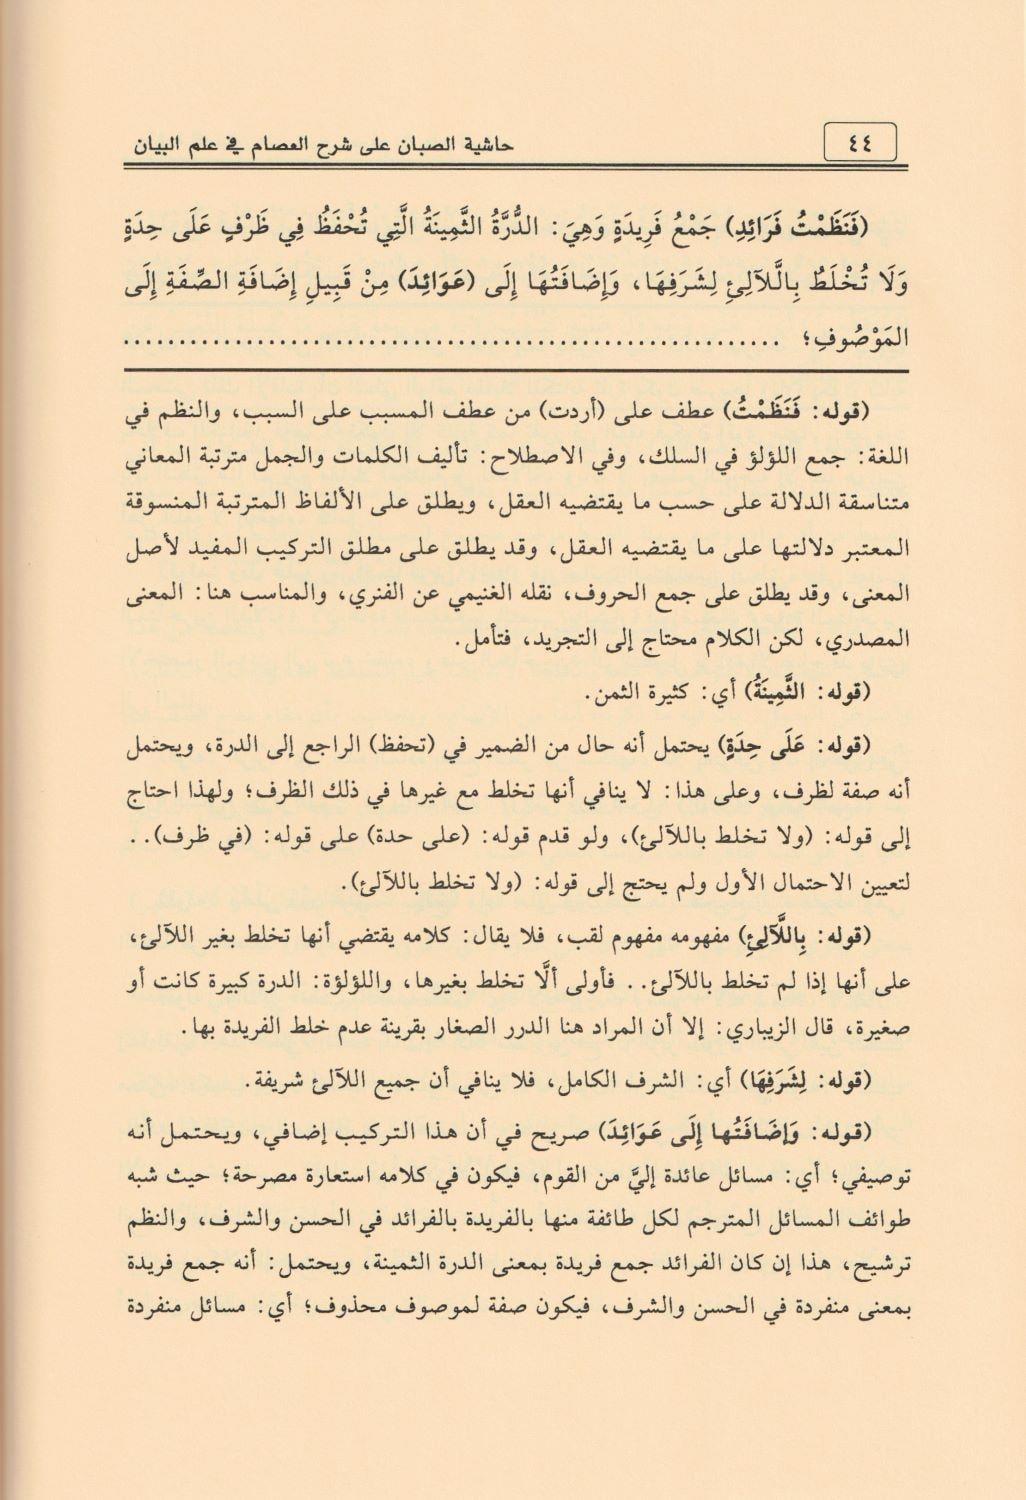 ٤٤
حاشية الصبان على شرح العصام في علم البيان
(فَنَظَمْتُ فَرَائِدِ) جَمْعُ فَرِيدَةٍ وَهِيَ: الدُّرَّةُ الثَّمِينَةُ الَّتِي تُحْفَظُ فِي ظَرْفٍ عَلَى حِدَةٍ
وَلَا تُخْلَطُ بِاللَّآلِئِ لِشَرَفِهَا، وَإِضَافَتُهَا إِلَى (عَوَائِدَ) مِنْ قَبِيلِ إِضَافَةِ الصِّفَةِ إِلَى
المَوْصُوفِ؛ ............................................................
(قوله: فَنَظَمْتُ) عطف على (أردت) من عطف المسبب على السبب، والنظم في
اللغة: جمع اللؤلؤ في السلك، وفي الاصطلاح: تأليف الكلمات والجمل مترتبة المعاني
متناسقة الدلالة على حسب ما يقتضيه العقل، ويطلق على الألفاظ المترتبة المنسوقة
المعتبر دلالتها على ما يقتضيه العقل، وقد يطلق على مطلق التركيب المفيد لأصل
المعنى، وقد يطلق على جمع الحروف، نقله الغنيمي عن الفنري، والمناسب هنا: المعنى
المصدري، لكن الكلام محتاج إلى التجريد، فتأمل.
(قوله: الثَّمِينَةُ) أي: كثيرة الثمن.
(قوله: عَلَى حِدَةٍ) يحتمل أنه حال من الضمير في (تحفظ) الراجع إلى الدرة، ويحتمل
أنه صفة لظرف، وعلى هذا: لا ينافي أنها تخلط مع غيرها في ذلك الظرف؛ ولهذا احتاج
إلى قوله: (ولا تخلط باللآلئ)، ولو قدم قوله: (على حدة) على قوله: (في ظرف)..
لتعيين الاحتمال الأول ولم يحتج إلى قوله: (ولا تخلط باللآلئ).
(قوله: بِاللَّآلِئِ) مفهومه مفهوم لقب، فلا يقال: كلامه يقتضي أنها تخلط بغير اللآلئ،
على أنها إذا لم تخلط باللآلئ.. فأولى ألَّا تخلط بغيرها، واللؤلؤة: الدرة كبيرة كانت أو
صغيرة، قال الزيباري: إلا أن المراد هنا الدرر الصغار بقرينة عدم خلط الفريدة بها.
(قوله: لِشَرَفِهَا) أي: الشرف الكامل، فلا ينافي أن جميع اللآلئ شريفة.
(قوله: وَإضَافَتُها إِلَى عَوَائِدَ) صريح في أن هذا التركيب إضافي، ويحتمل أنه
توصيفي؛ أي: مسائل عائدة إليَّ من القوم، فيكون في كلامه استعارة مصرحة؛ حيث شبه
طوائف المسائل المترجم لكل طائفة منها بالفريدة بالفرائد في الحسن والشرف، والنظم
ترشيح، هذا إن كان الفرائد جمع فريدة بمعنى الدرة الثمينة، ويحتمل: أنه جمع فريدة
بمعنى منفردة في الحسن والشرف، فيكون صفة لموصوف محذوف؛ أي: مسائل منفردة